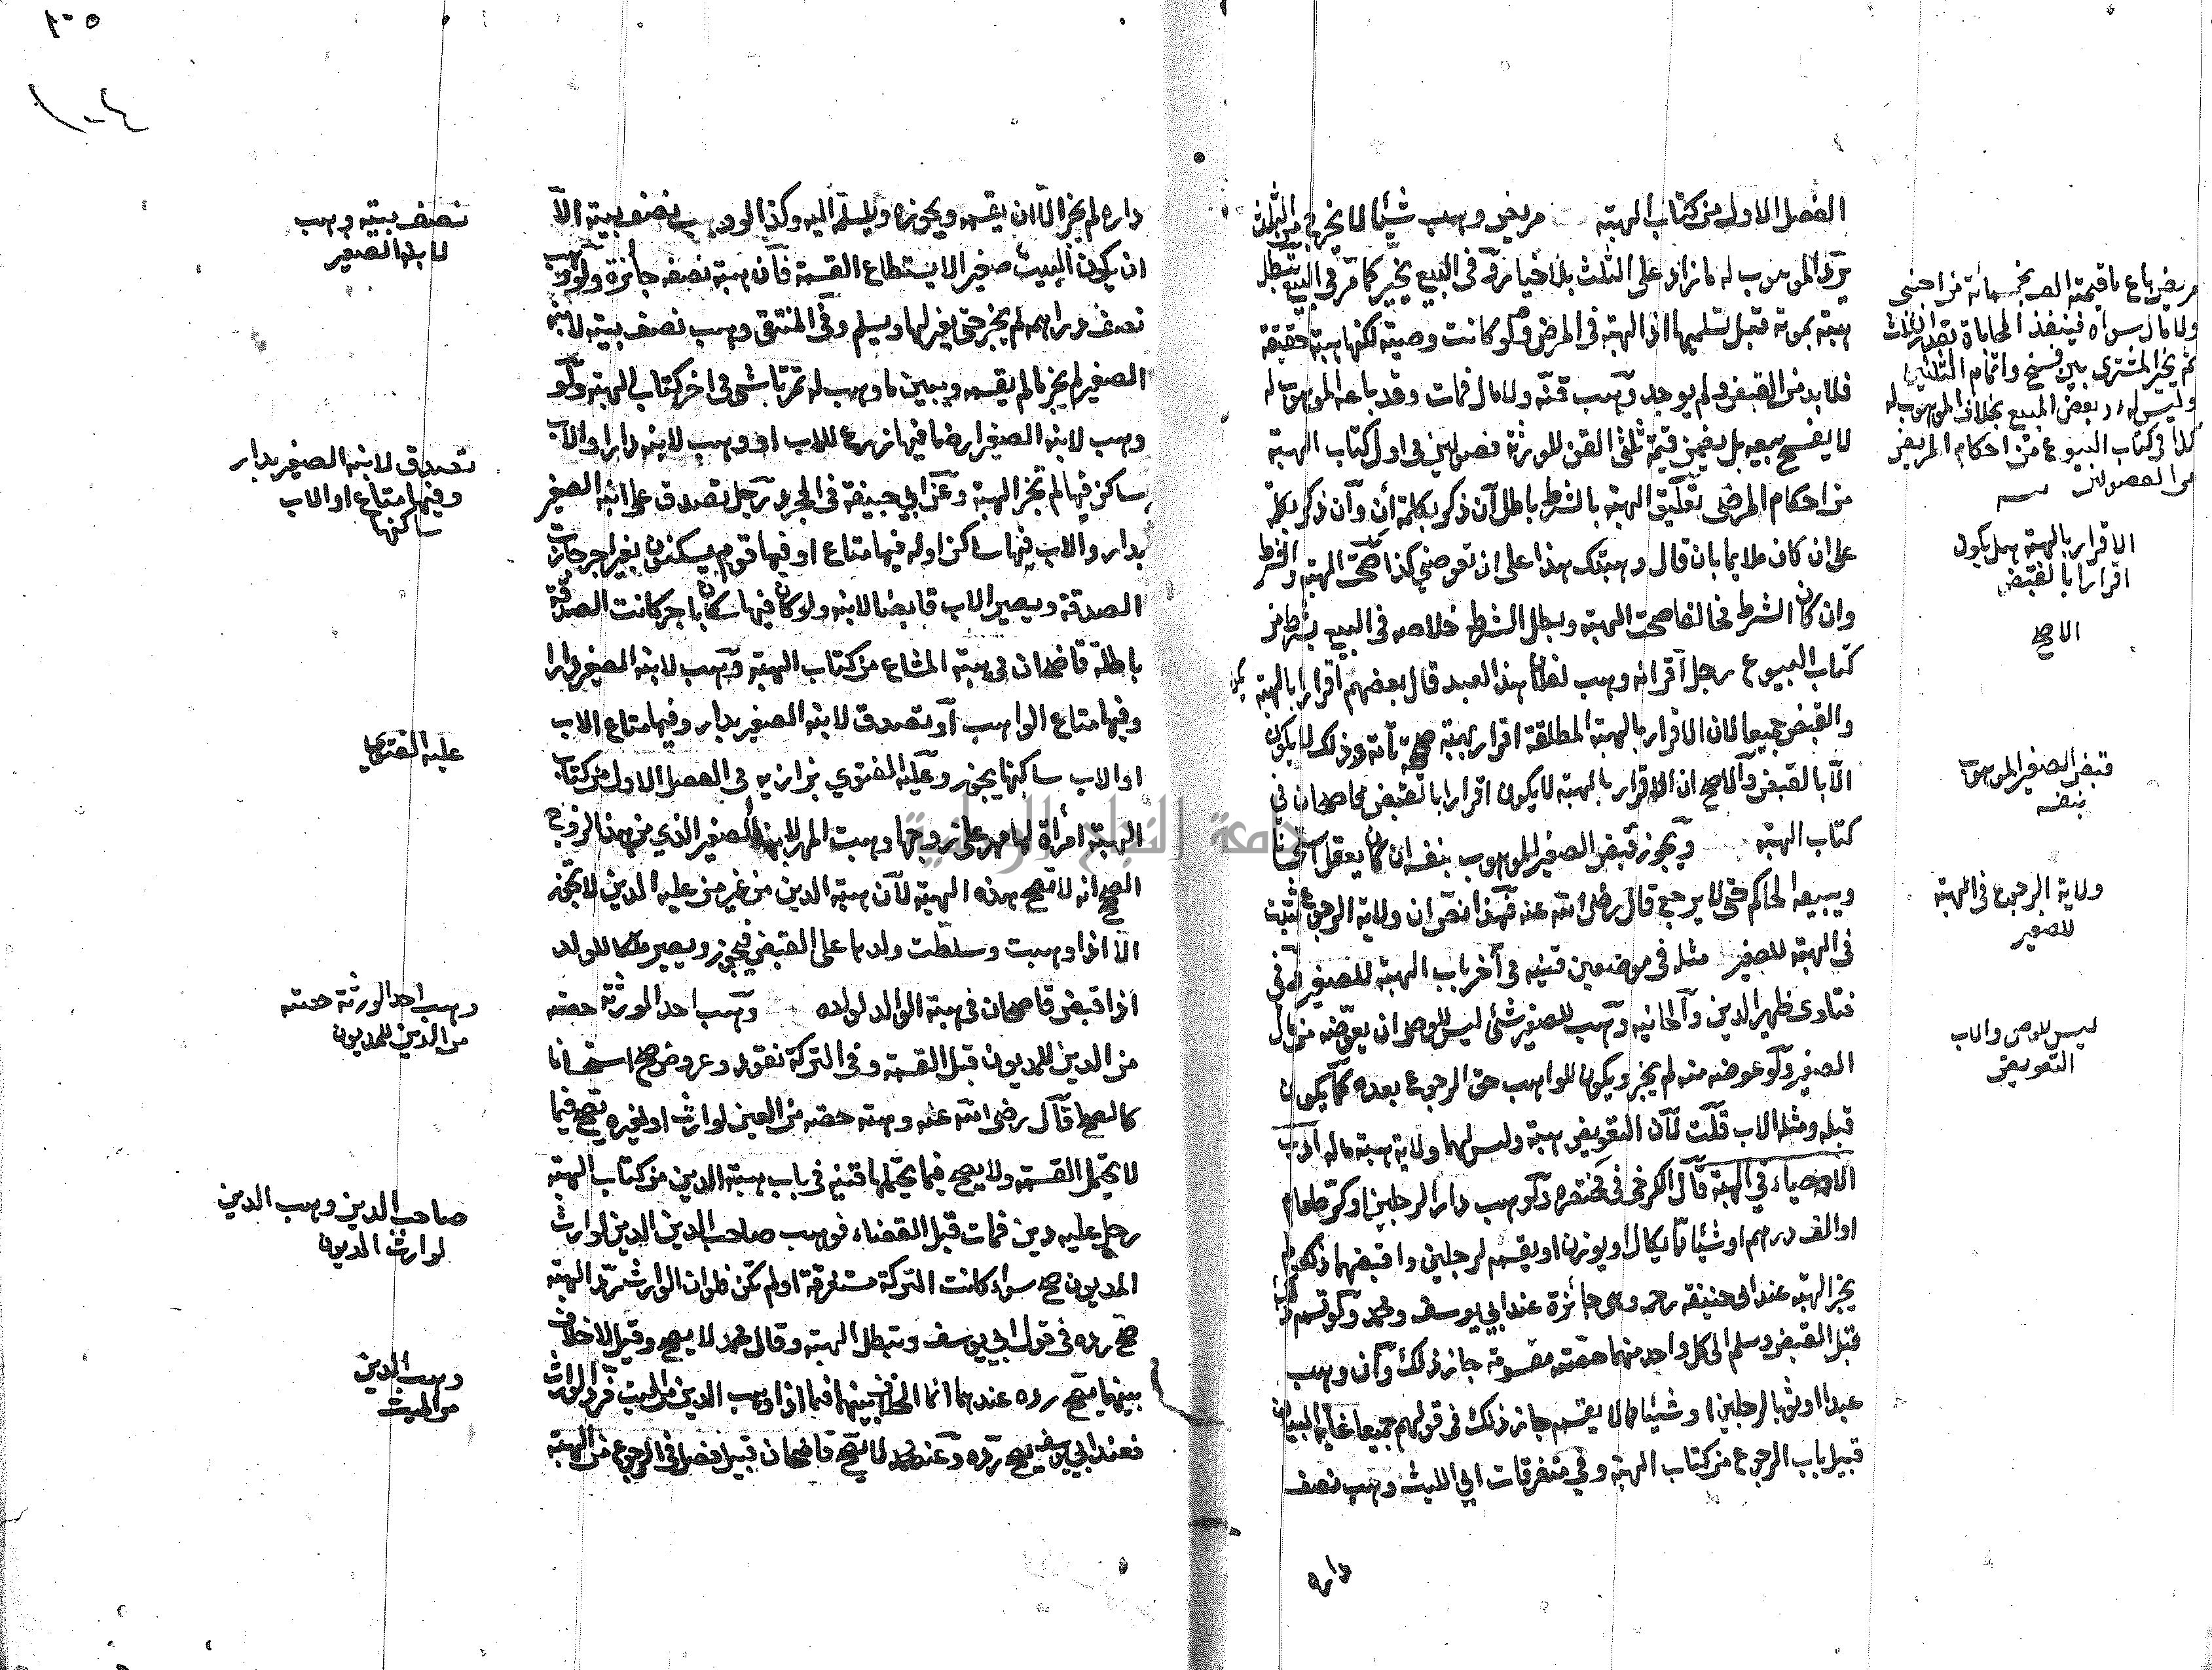 الفصل الاول من كتاب الهبة مريض وهب شيئا لا يخرج من الثلث
يرد الموهوب له ما زاد على الثلث بلا خيار وفى البيع يخير كما مر فى البيع تبطل
هبته بموته قبل تسليمها اذ الهبة فى المرض ولو كانت وصية لكنها هبة حقيقة
فلا بد من القبض ولم يوجد وهب قنه ولا مال فمات وقد باعه الموهوب له
لا يفسخ بيعه بل يضمن قيمة ثلثى القن للورثة فصولين فى اول كتاب الهبة
من احكام المرضى تعليق الهبة بالشرط باطل ان ذكر بكلمة ان وان ذكر بكلمة
على ان كان ملايما بان قال وهبتك هذا على ان تعوضني كذا صحت الهبة والشرط
وان كان الشرط مخالفا صحت الهبة وبطل الشرط خلاصه فى البيع بشرط من
كتاب البيوع رجل اقر انه وهب لفلان هذا العبد قال بعضهم اقرار بالهبة
والقبض جميعا لان الاقرار بالهبة المطلقة اقرار بهبة تامة وذلك لا يكون
الا بالقبض والاصح ان الاقرار بالهبة لا يكون اقرارا بالقبض قاضحان فى
كتاب الهبة ويجوز قبض الصغير الموهوب بنفسه ان كان يعقل
ويبيعه الحاكم حتى لا يرجع قال رضى الله عنه فهذا نص ان ولاية الرجوع تثبت
فى الهبة للصغير مثله فى موضعين قنيه فى آخر باب الهبة للصغير وفى
فتاوى ظهير الدين والخانيه وهب للصغير شئ ليس للوصى ان يعوضه من مال
الصغير ولو عوضه منه لم يجز ويكون للواهب حق الرجوع بعده كما يكون
قبله ومثله الاب قلت لان التعويض هبة وليس لهما ولاية هبة ماله
الاوصياء فى الهبة قال الكرخى فى مختصره ولو وهب دارا لرجلين او كر طعام
او الف درهم او شيئا مما يكال او يوزن او يقسم لرجلين واقبضهما ذلك لم
يجز الهبة عند ابى حنيفة رحمه وهى جائزة عند ابي يوسف ومحمد ولو قسم
قبل القبض وسلم الى كل واحد منهما حصته مقسومة جاز ذلك وان وهب
عبدا او ثوبا لرجلين او شيئا مما لا يقسم جاز ذلك فى قولهم جميعا غاية البيان
قبيل باب الرجوع من كتاب الهبة وفي متفرقات ابي الليث وهب نصف
داره
مريض باع ما قيمته الف بخمسمائة من اجنبى
ولا مال سواه فينفذ المحاباة بقدر الثلث
ثم يخير المشترى بين فسخ واتمام الثلثين
وليس له رد بعض المبيع بخلاف الموهوب له
كذا فى كتاب البيوع من احكام المريض
من الفصولين
الاقرار بالهبة هل يكون
اقرارا بالقبض
الاصح
قبض الصغير الموهوب
بنفسه
ولاية الرجوع فى الهبة
للصغير
ليس للوصى والاب
التعويض
١٠٥
١٠٤
داره لم يجز الا ان يقسمه ويحوزه ويسلمه اليه وكذا لو وهب نصف بيته الا
ان يكون البيت صغيرا لا يستطاع القسمة فان هبة نصفه جائزة ولو وهب
نصف دراهم لم يجز حتى يفرزها ويسلم وفى المنتقى وهب نصف بيته لابنه
الصغير لم يجز ما لم يقسمه ويبين ما وهب له تمرتاشى فى اخر كتاب الهبة ولو
وهب لابنه الصغير ارضا فيها زرع للاب او وهب لابنه دارا والاب
ساكن فيها لم تجز الهبة وعن ابي حنيفة فى المجرد رجل تصدق على ابنه الصغير
بدار والاب فيها ساكن او له فيها متاع او فيها قوم يسكنون بغير اجر جازت
الصدقة ويصير الاب قابضا لابنه ولو كان فيها سكان باجر كانت الصدقة
باطلة قاضحان فى هبة المشاع من كتاب الهبة وهب لابنه الصغير دارا
وفيها متاع الواهب او تصدق لابنه الصغير بدار وفيها متاع الاب
او الاب ساكنها يجوز وعليه الفتوي بزازيه فى الفصل الاول من كتاب
الهبة امرأة لها مهر على زوجها وهبت المهر لابنها الصغير الذي من هذا الزوج
الصحيح انه لا تصح هذه الهبة لان هبة الدين من غير من عليه الدين لا تجوز
الا اذا وهبت وسلطت ولدها على القبض فيجوز ويصير ملكا للولد
اذا قبض قاضحان فى هبة الوالد لولده وهب احد الورثة حصته
من الدين للمديون قبل القسمة وفى التركة نقود وعروض صح استحسانا
كالصلح قال رضى الله عنه وهبة حصته من العين لوارث او لغيره تصح فيما
لا يحتمل القسمة ولا يصح فيما يحتملها قنيه فى باب هبة الدين من كتاب الهبة
رجل عليه دين فمات قبل القضاء فوهب صاحب الدين الدين لوارث
المديون صح سواء كانت التركة مستغرقة او لم تكن فلو ان الوارث رد الهبة
صح رده فى قول ابي يوسف وتبطل الهبة وقال محمد لا يصح وقيل لا خلاف
بينهما يصح رده عندهما انما الخلاف بينهما فيما اذا وهب الدين من الميت فرد الوارث
فعند ابي يوسف يصح رده وعند محمد لا يصح قاضحان قبيل فصل فى الرجوع من الهبة
نصف بيته وهب
لابنه الصغير
تصدق لابنه الصغير بدار
وفيها متاع او الاب
ساكنها
عليه الفتوي
وهب احد الورثة حصته
من الدين للمديون
صاحب الدين وهب الدين
لوارث المديون
وهب الدين
من الميت
جامعة النجاح الوطنية